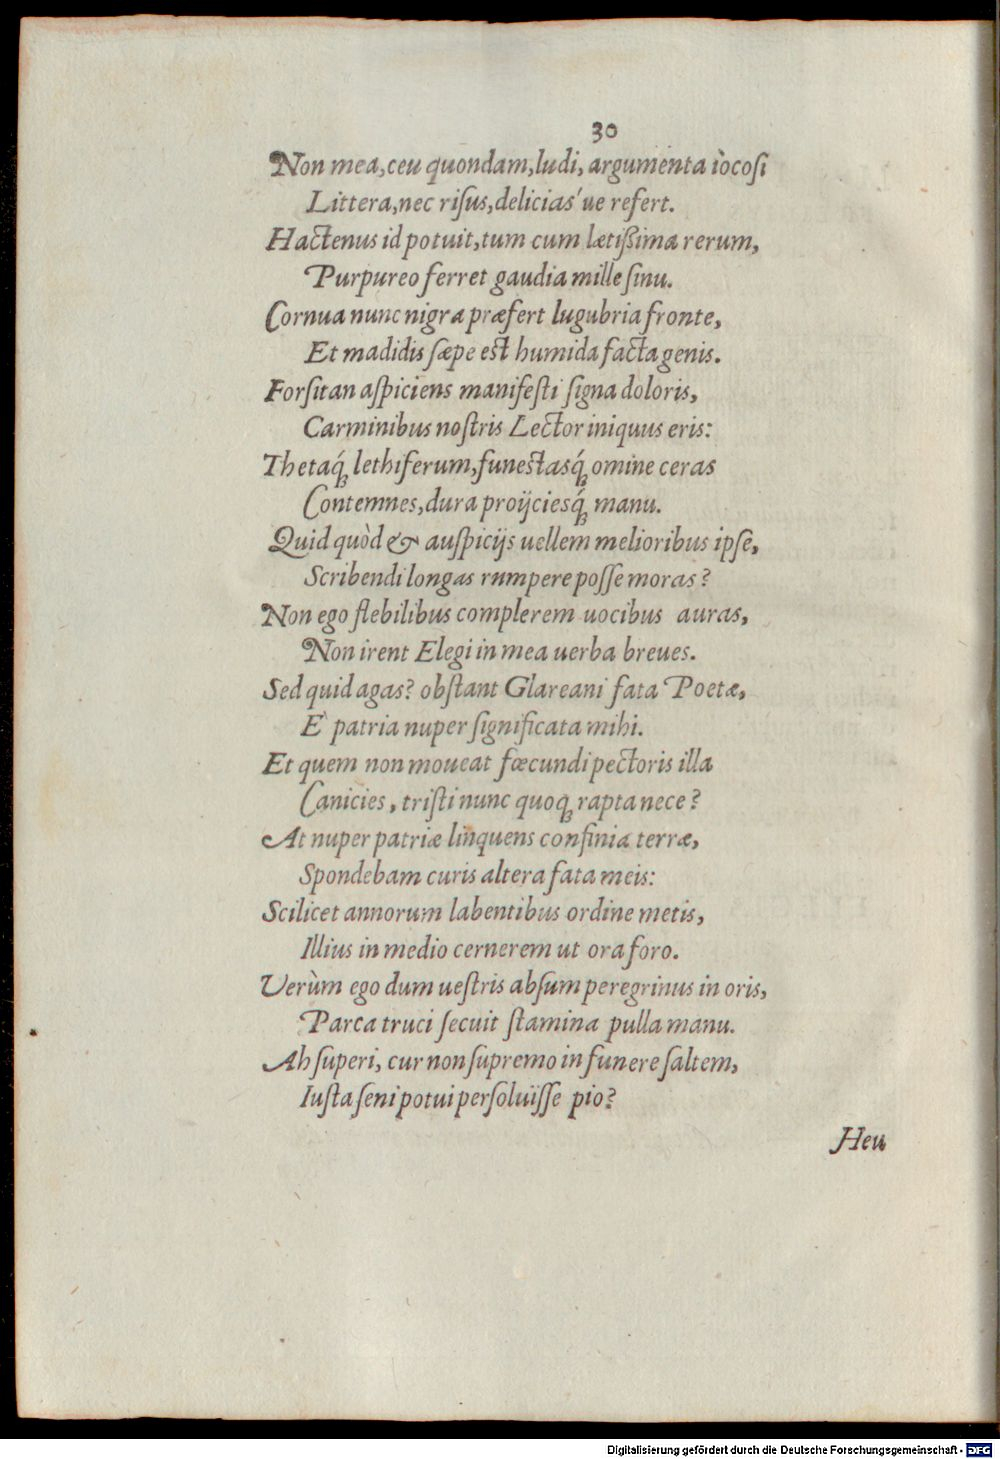 30
Non mea, ceu quondam, ludi, argumenta iòcosi
Littera, nec risus, delicias'ue refert.
Hactenus id potuit, tum cum lætißima rerum,
Purpureo ferret gaudia mille sinu.
Cornua nunc nigra præfert lugubria fronte,
Et madidis sæpe est humida facta genis.
Forsitan aspiciens manifesti signa doloris,
Carminibus nostris Lector iniquus eris:
Thetaq́; lethiferum, funestasq́; omine ceras
Contemnes, dura proijciesq́; manu.
Quid quòd & auspicijs uellem melioribus ipse,
Scribendi longas rnmpere posse moras?
Non ego flebilibus complerem uocibus auras,
Non irent Elegi in mea uerba breues.
Sed quid agas? obstant Glareani fata Poetæ,
E patria nuper significata mihi.
Et quem non moueat fœcundi pectoris illa
Canicies, tristi nunc quoq; rapta nece?
At nuper patriæ linquens confinia terræ,
Spondebam curis altera fata meis:
Scilicet annorum labentibus ordine metis,
Illius in medio cernerem ut ora foro.
Verùm ego dum uestris absum peregrinus in oris,
Parca truci secuit stamina pulla manu.
Ah superi, cur non supremo in funere saltem,
Iusta seni potui persoluisse pio?
Heu
Digitalisierung gefördert durch die Deutsche Forschungsgemeinschaft - DFG